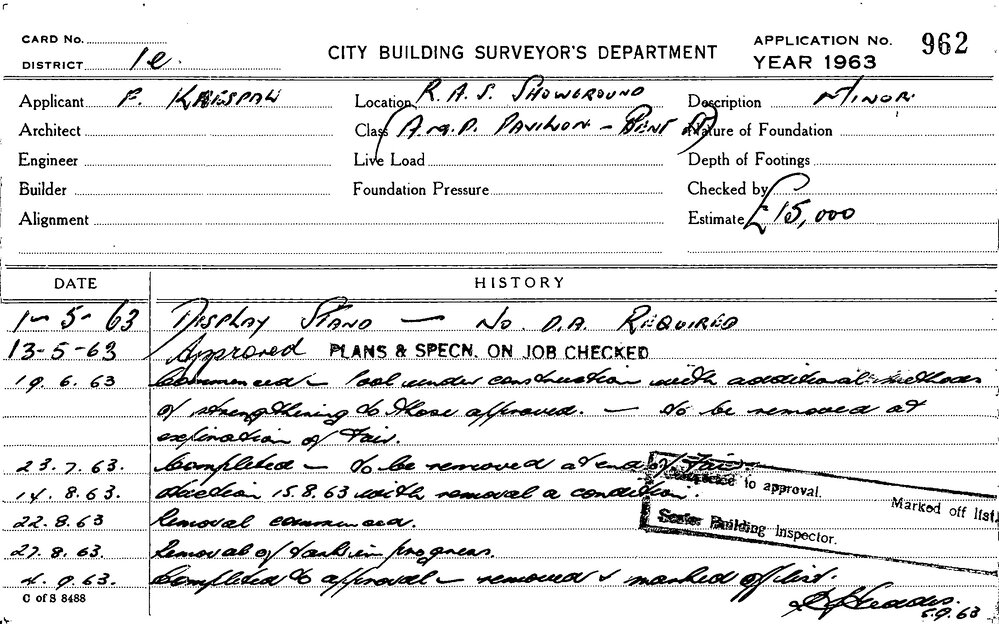 CARD No.
DISTRICT 1e.
CITY BUILDING SURVEYOR'S DEPARTMENT
APPLICATION No. 962
YEAR 1963
Applicant F.
Location R.A.S. SHOWGROUND
Description MINOR
Architect
Class (A.M.P. PAVILION -
Nature of Foundation
Engineer
Live Load
Depth of Footings
Builder
Foundation Pressure
Checked by
Alignment
Estimate £15,000
DATE
HISTORY
1-5-63 DISPLAY STAND — NO D.A. REQUIRED
13-5-63 Approved PLANS & SPECN. ON JOB CHECKED
19.6.63 Commenced - Pool under construction with additional methods
of strengthening to those approved. — to be removed at
expiration of Fair.
23.7.63. Completed - to be removed at end of Fair.
14.8.63. 15.8.63 with removal a condition.
to approval.
Marked off list.
Building Inspector.
22.8.63 Removal commenced.
27.8.63. Removal of tank in progress.
4.9.63. Completed to approval - removed & marked off list.
C of S 8488
5.9.63